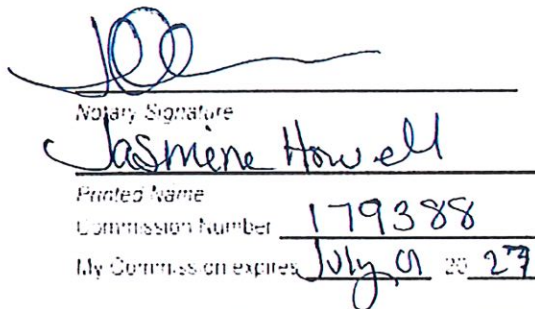 Notary Signature
Jasmine Howell
Printed Name
Commission Number 179388
My Commission expires July 9 20 27